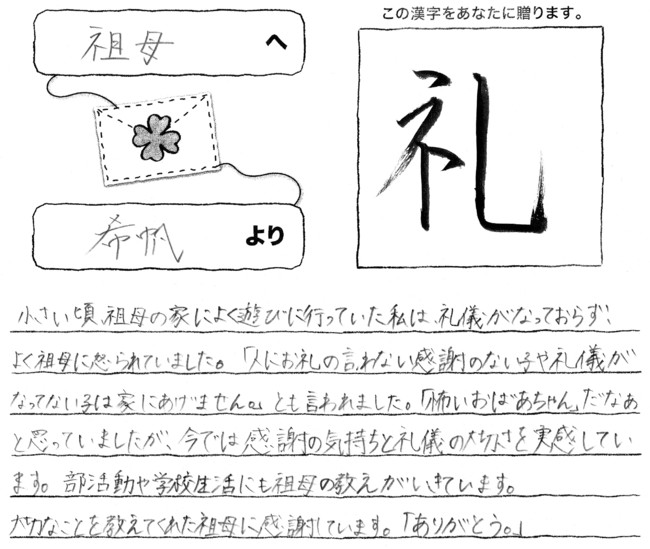 この漢字をあなたに贈ります。
祖母 へ
礼
希帆 より
小さい頃、祖母の家によく遊びに行っていた私は、礼儀がなっておらず、
よく祖母に怒られていました。「人にお礼の言わない感謝のない子や礼儀が
なってない子は家にあげません。」とも言われました。「怖いおばあちゃん」だなぁ
と思っていましたが、今では感謝の気持ちと礼儀の大切さを実感してい
ます。部活動や学校生活にも祖母の教えがいきています。
大切なことを教えてくれた祖母に感謝しています。「ありがとう。」